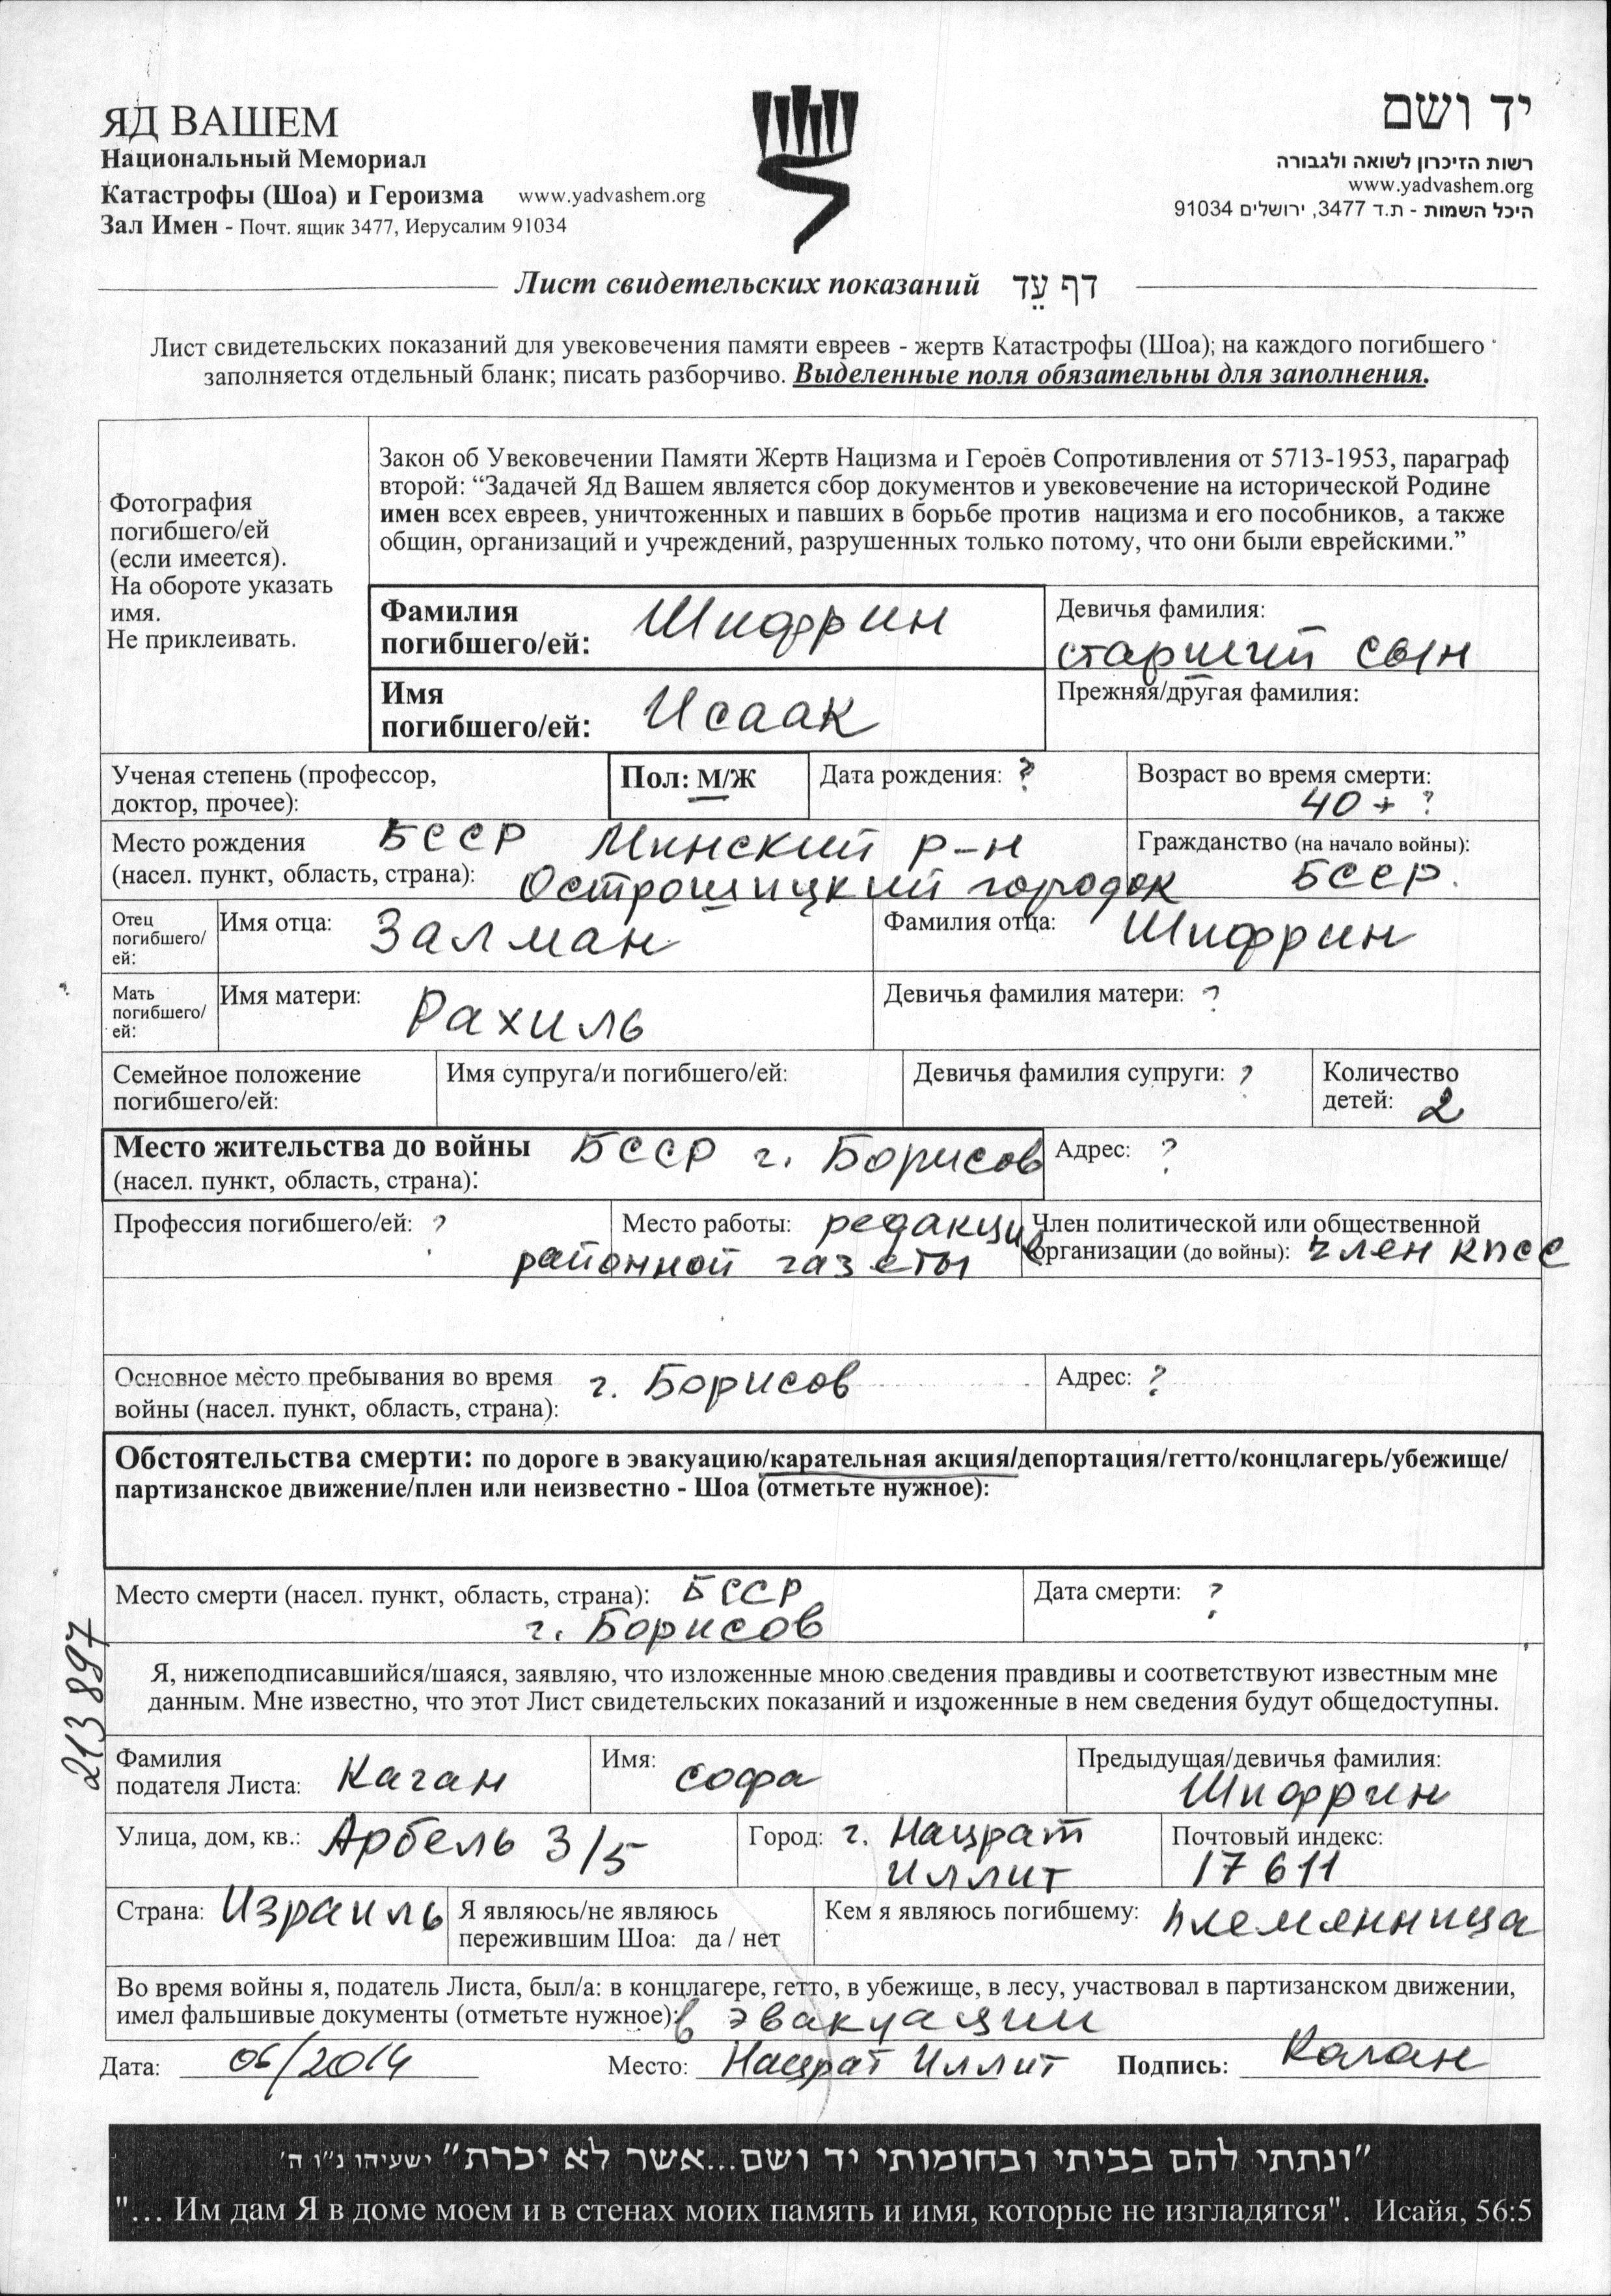 ЯД ВАШЕМ
Национальный Мемориал
Катастрофы (Шоа) и Героизма www.yadvashem.org
Зал Имен - Почт. ящик 3477, Иерусалим 91034
יד ושם
רשות הזיכרון לשואה ולגבורה
www.yadvashem.org
היכל השמות - ת.ד 3477, ירושלים 91034
Лист свидетельских показаний דף עֵד
Лист свидетельских показаний для увековечения памяти евреев - жертв Катастрофы (Шоа); на каждого погибшего
заполняется отдельный бланк; писать разборчиво. Выделенные поля обязательны для заполнения.
Фотография
погибшего/ей
(если имеется).
На обороте указать
имя.
Не приклеивать.
Закон об Увековечении Памяти Жертв Нацизма и Героев Сопротивления от 5713-1953, параграф
второй: “Задачей Яд Вашем является сбор документов и увековечение на исторической Родине
имен всех евреев, уничтоженных и павших в борьбе против нацизма и его пособников, а также
общин, организаций и учреждений, разрушенных только потому, что они были еврейскими.”
Фамилия
погибшего/ей: Шифрин
Девичья фамилия:
старший сын
Имя
погибшего/ей: Исаак
Прежняя/другая фамилия:
Ученая степень (профессор,
доктор, прочее):
Пол: М/Ж
Дата рождения: ?
Возраст во время смерти:
40 + ?
Место рождения БССР Минский р-н
(насел. пункт, область, страна): Острошицкий городок
Гражданство (на начало войны):
БССР.
Отец
погибшего/
ей:
Имя отца: Залман
Фамилия отца: Шифрин
Мать
погибшего/
ей:
Имя матери: Рахиль
Девичья фамилия матери: ?
Семейное положение
погибшего/ей:
Имя супруга/и погибшего/ей:
Девичья фамилия супруги: ?
Количество
детей: 2
Место жительства до войны БССР г. Борисов
(насел. пункт, область, страна):
Адрес: ?
Профессия погибшего/ей: ?
Место работы: редакция
районной газеты
Член политической или общественной
организации (до войны): член КПСС
Основное место пребывания во время г. Борисов
войны (насел. пункт, область, страна):
Адрес: ?
Обстоятельства смерти: по дороге в эвакуацию/карательная акция/депортация/гетто/концлагерь/убежище/
партизанское движение/плен или неизвестно - Шоа (отметьте нужное):
Место смерти (насел. пункт, область, страна): БССР
г. Борисов
Дата смерти: ?
213 897
Я, нижеподписавшийся/шаяся, заявляю, что изложенные мною сведения правдивы и соответствуют известным мне
данным. Мне известно, что этот Лист свидетельских показаний и изложенные в нем сведения будут общедоступны.
Фамилия
подателя Листа: Каган
Имя: Софа
Предыдущая/девичья фамилия:
Шифрин
Улица, дом, кв.: Арбель 3/5
Город: г. Нацрат
Иллит
Почтовый индекс:
17611
Страна: Израиль
Я являюсь/не являюсь
пережившим Шоа: да / нет
Кем я являюсь погибшему: племянница
Во время войны я, податель Листа, был/а: в концлагере, гетто, в убежище, в лесу, участвовал в партизанском движении,
имел фальшивые документы (отметьте нужное): в эвакуации
Дата: 06/2014 Место: Нацрат Иллит Подпись: Каган
"ונתתי להם בביתי ובחומותי יד ושם...אשר לא יכרת" ישעיהו נ"ו ה'
"... Им дам Я в доме моем и в стенах моих память и имя, которые не изгладятся". Исайя, 56:5